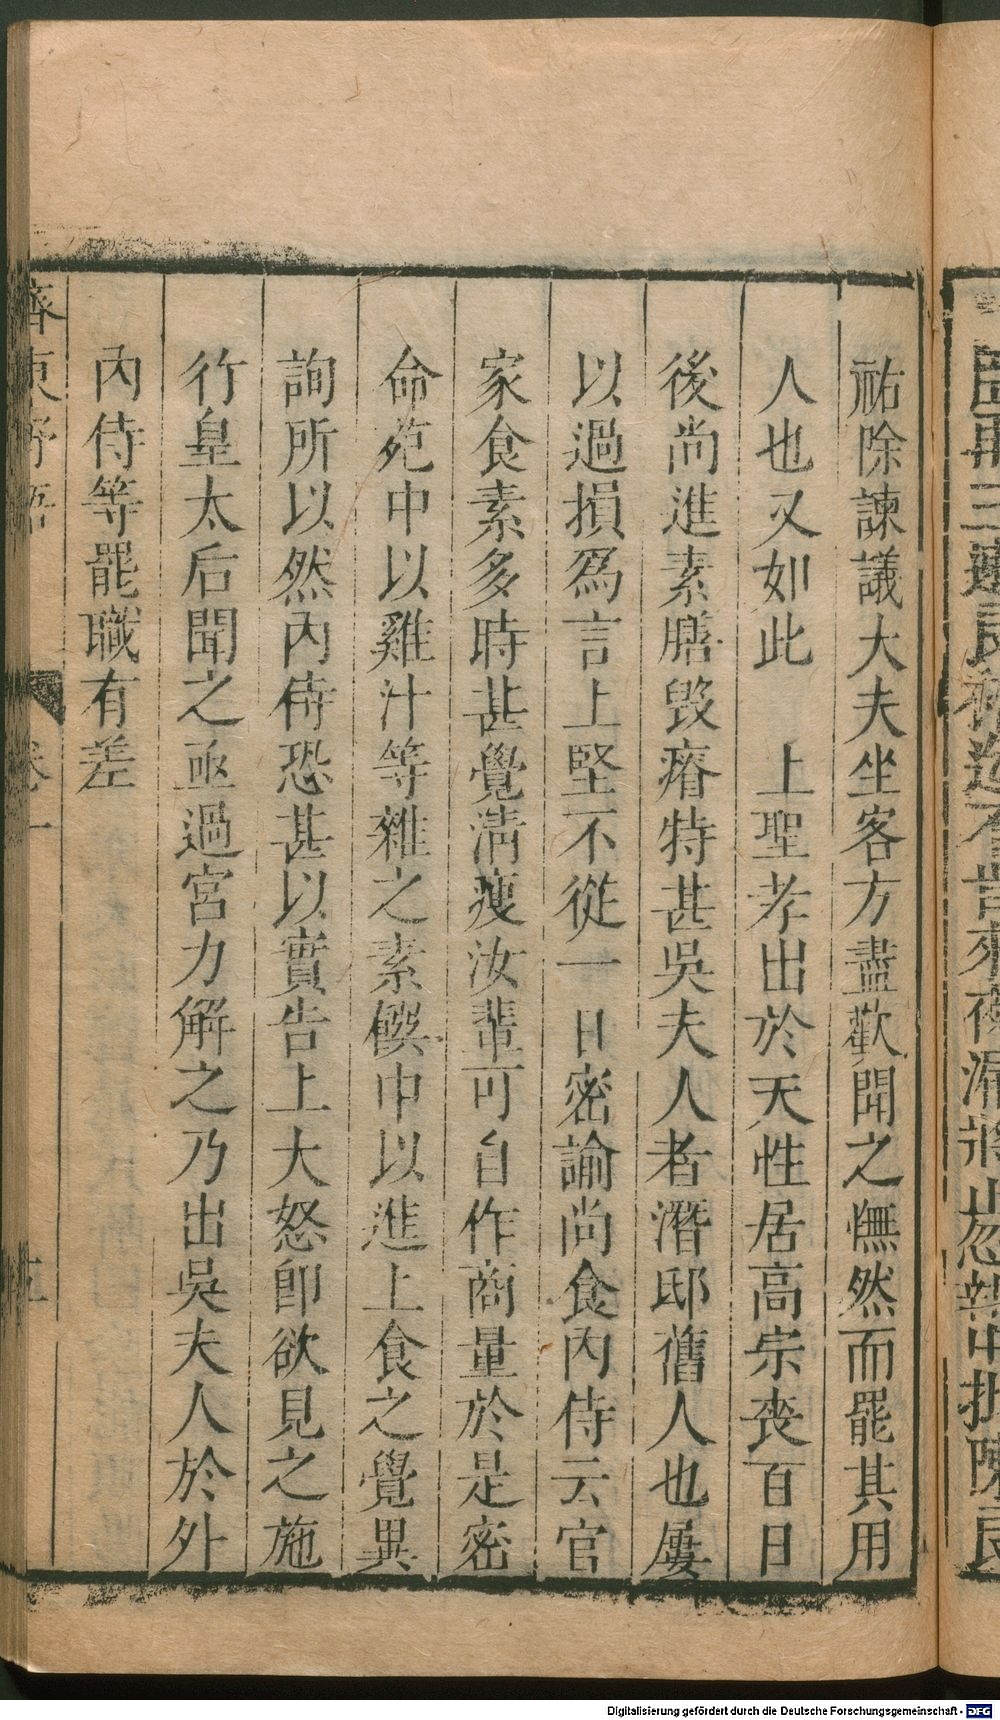 祐除諫議大夫坐客方盡歡聞之憮然而罷其用
人也又如此　上聖孝出於天性居高宗喪百日
後尚進素膳毀瘠特甚吳夫人者潛邸舊人也屢
以過損爲言上堅不從一日密諭尚食內侍云官
家食素多時甚覺淸瘦汝輩可自作商量於是密
命苑中以雞汁等雜之素饌中以進上食之覺異
詢所以然內侍恐甚以實告上大怒卽欲見之施
行皇太后聞之亟過宮力解之乃出吳夫人於外
內侍等罷職有差
齊東野語　卷一
Digitalisierung gefördert durch die Deutsche Forschungsgemeinschaft - DFG